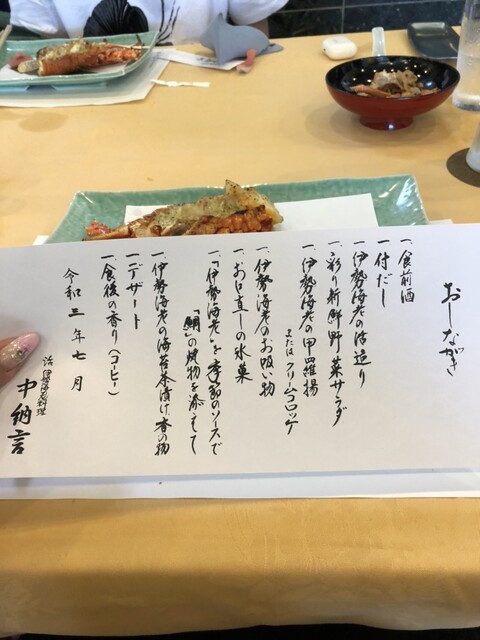 おしながき
一、食前酒
一、付だし
一、伊勢海老の活造り
一、彩り新鮮野菜サラダ
一、伊勢海老の甲羅揚
または クリームコロッケ
一、伊勢海老のお吸い物
一、お口直しの氷菓
一、「伊勢海老」を季節のソースで
「鯛」の焼物を添えて
一、伊勢海老の海苔茶漬け、香の物
一、デザート
一、食後の香り（コーヒー）
令和三年七月
活伊勢海老料理
中納言